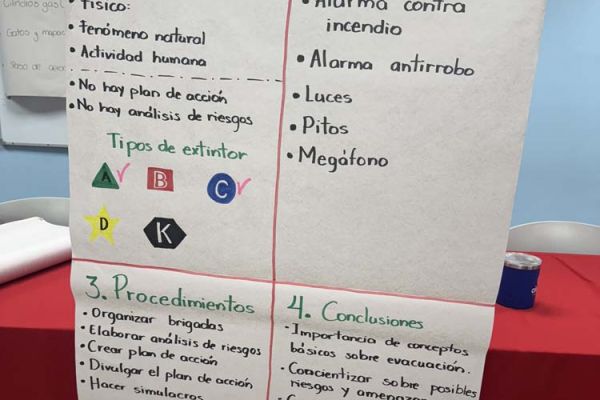 Cilindros gas
Gatos y mapac
Físico:
• Fenómeno natural
• Actividad humana
• No hay plan de acción
• No hay análisis de riesgos
Tipos de extintor
A
B
C
D
K
• Alarma contra
incendio
• Alarma antirrobo
• Luces
• Pitos
• Megáfono
3. Procedimientos
• Organizar brigadas
• Elaborar análisis de riesgos
• Crear plan de acción
• Divulgar el plan de acción
• Hacer simulacros
4. Conclusiones
• Importancia de conceptos
básicos sobre evacuación.
• Concientizar sobre posibles
riesgos y amenazas